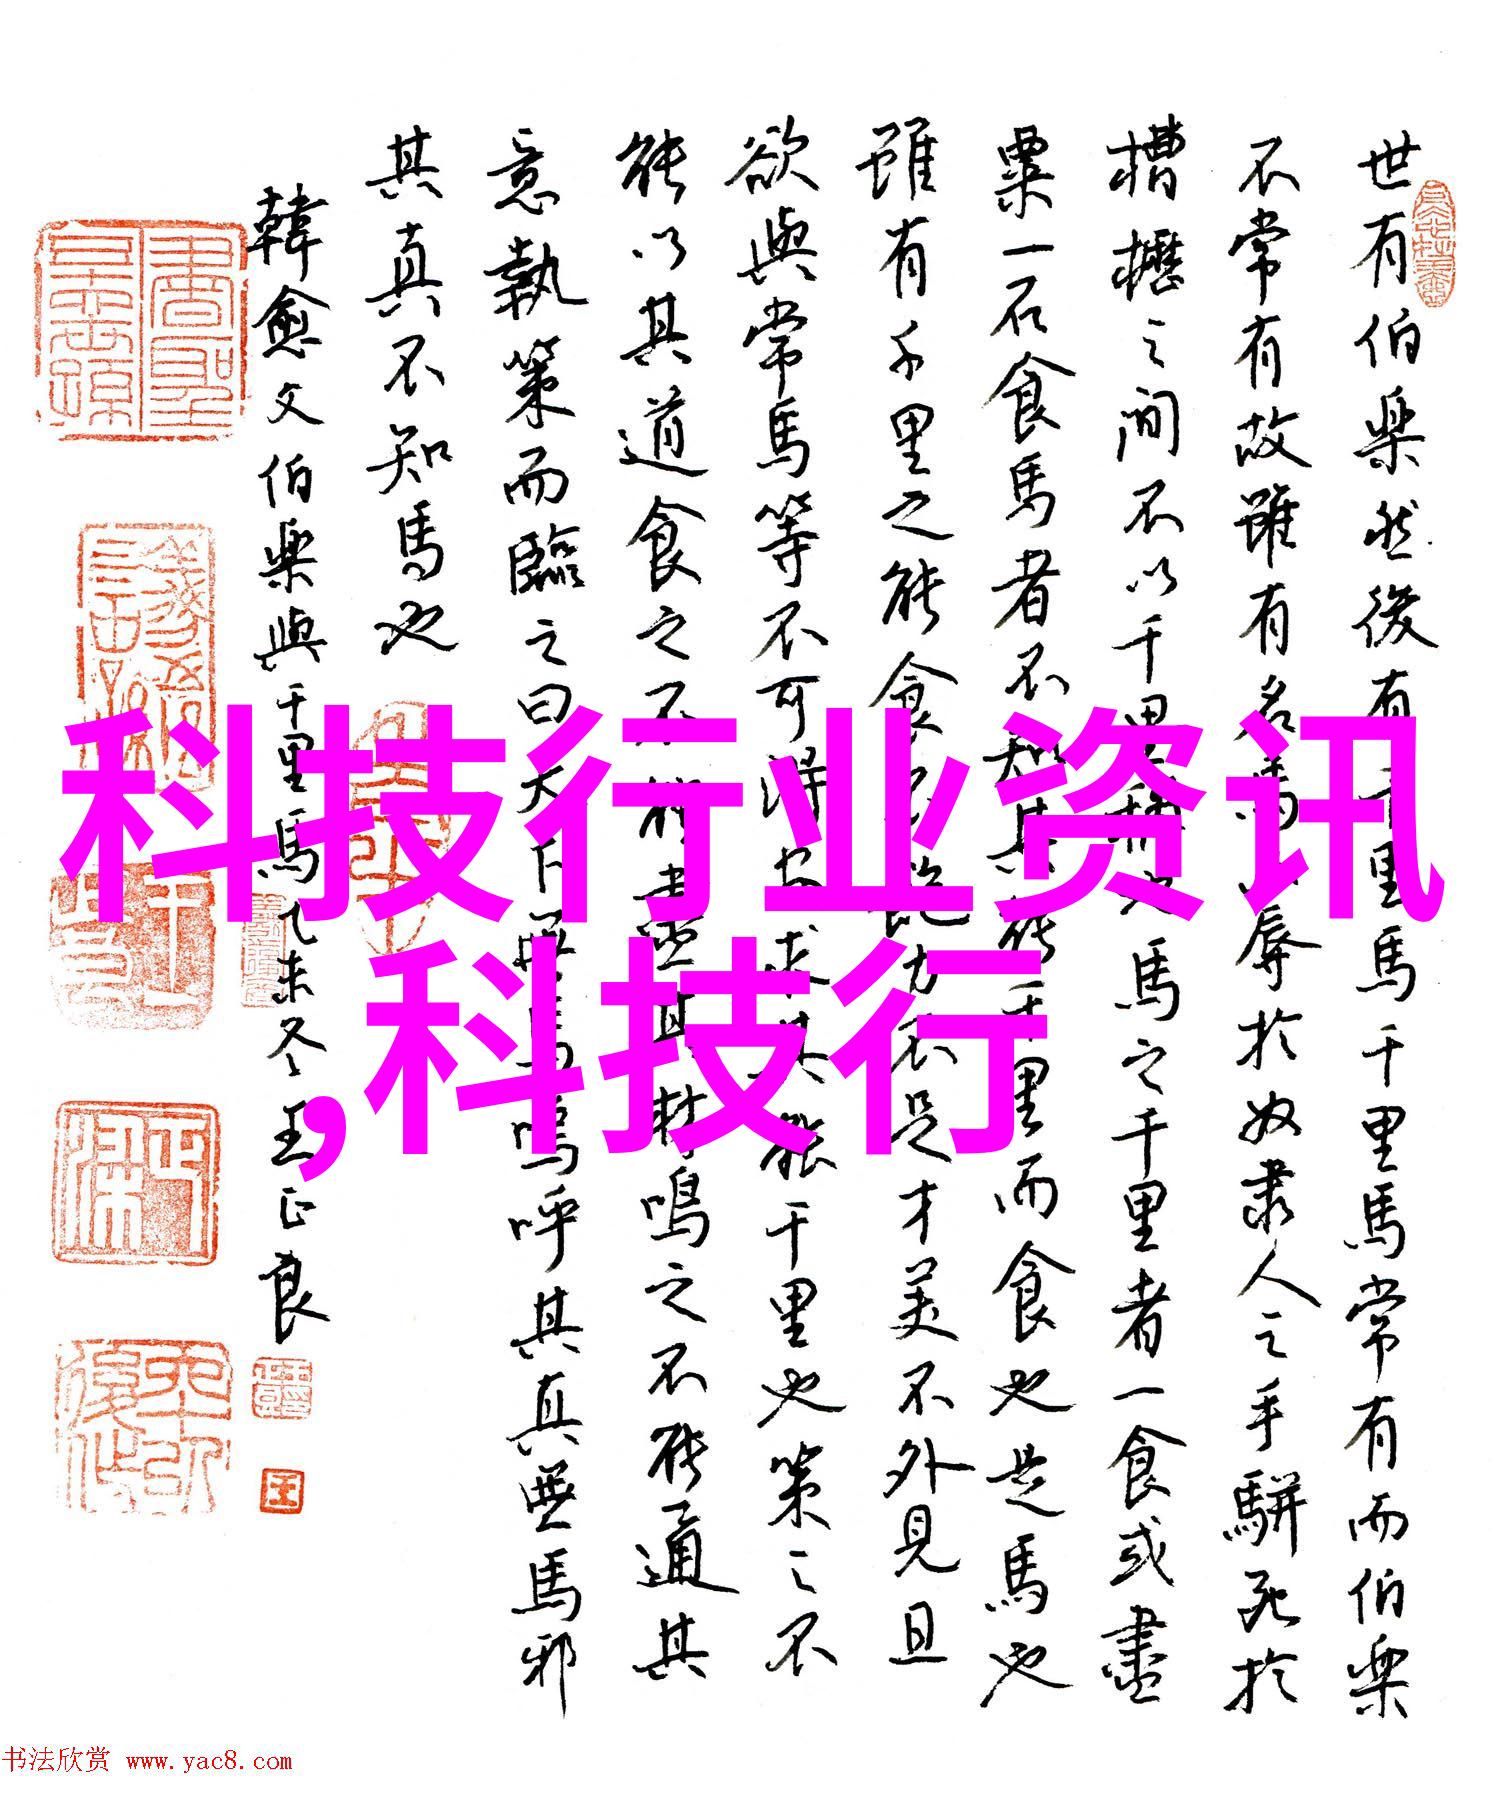 世有伯樂然後有千里馬千里馬常有而伯樂
不常有故雖有名馬辱於奴隸人之手駢死於
槽櫪之間不以千里稱也馬之千里者一食或盡
粟一石食馬者不知其能千里而食也是馬也
雖有千里之能食不飽力不足才美不外見且
欲與常馬等不可得安求其能千里也策之不
能以其道食之不能盡其材鳴之不能通其
意執策而臨之曰天下無馬嗚呼其真無馬邪
其真不知馬也
韓愈文伯樂與千里馬乙未冬王正良
科技行业资讯
,科技行
书法欣赏 www.yac8.com